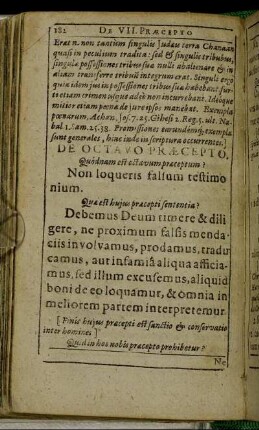 182 DE VII. PRÆCEPTO
Erat n. non tantum singulis Judææ terra Chanaan
quasi in peculium tradita: sed & singulis tribubus,
singula possessiones tribus sua nulli abalienare & in
aliam transferre tribũ integrum erat. Singuli ergo
idem jus in possessiones tribus sua habebant
mitior etiam pœna de jure ipsos manebat. Exempla
pœnarum, Achan, Jos. 7. 25. Gihesi 2. Reg. 5. ult. Na-
bal 1. Sam. 25. 38. Promissiones eorundem, & exempla
sunt generales, hinc inde in scriptura occurrentes.
DE OCTAVO PRÆCEPTO.
Quodnam est octavum præceptum?
Non loqueris falsum testimo
nium.
Quæ est hujus præcepti sententia?
Debemus Deum timere & dili
gere, ne proximum falsis menda
ciis involvamus, prodamus, tradu
camus, aut infamiâ aliqua afficia-
mus, sed illum excusemus, aliquid
boni de eo loquamur, & omnia in
meliorem partem interpretemur.
[Finis hujus præcepti est sanctio & conservatio
inter homines]
Quid in hoc nobis præcepto prohibetur?
Ne